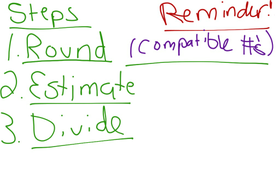 Steps
Reminder!
1. Round
(Compatible #'s)
2. Estimate
3. Divide